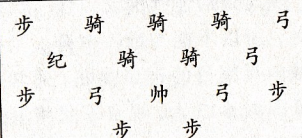 步 骑 骑 骑 弓
纪 骑 骑 弓
步 弓 帅 弓 步
步 步